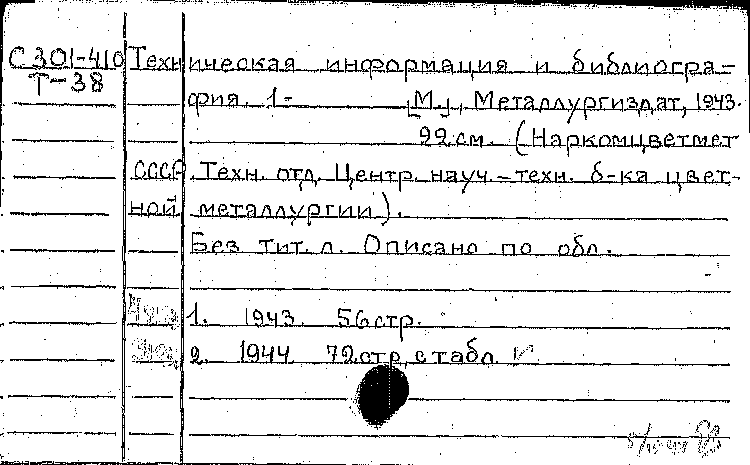 С301-410 Техническая информация и библиогра-
Т-38
фия. 1- [М.], Металлургиздат, 1943.
22 см. (Наркомцветмет
СССР. Техн. отд. Центр. науч.-техн. б-ка цвет-
ной металлургии).
Без тит. л. Описано по обл.
1. 1943. 56 стр.
2. 1944 72 стр. с табл.